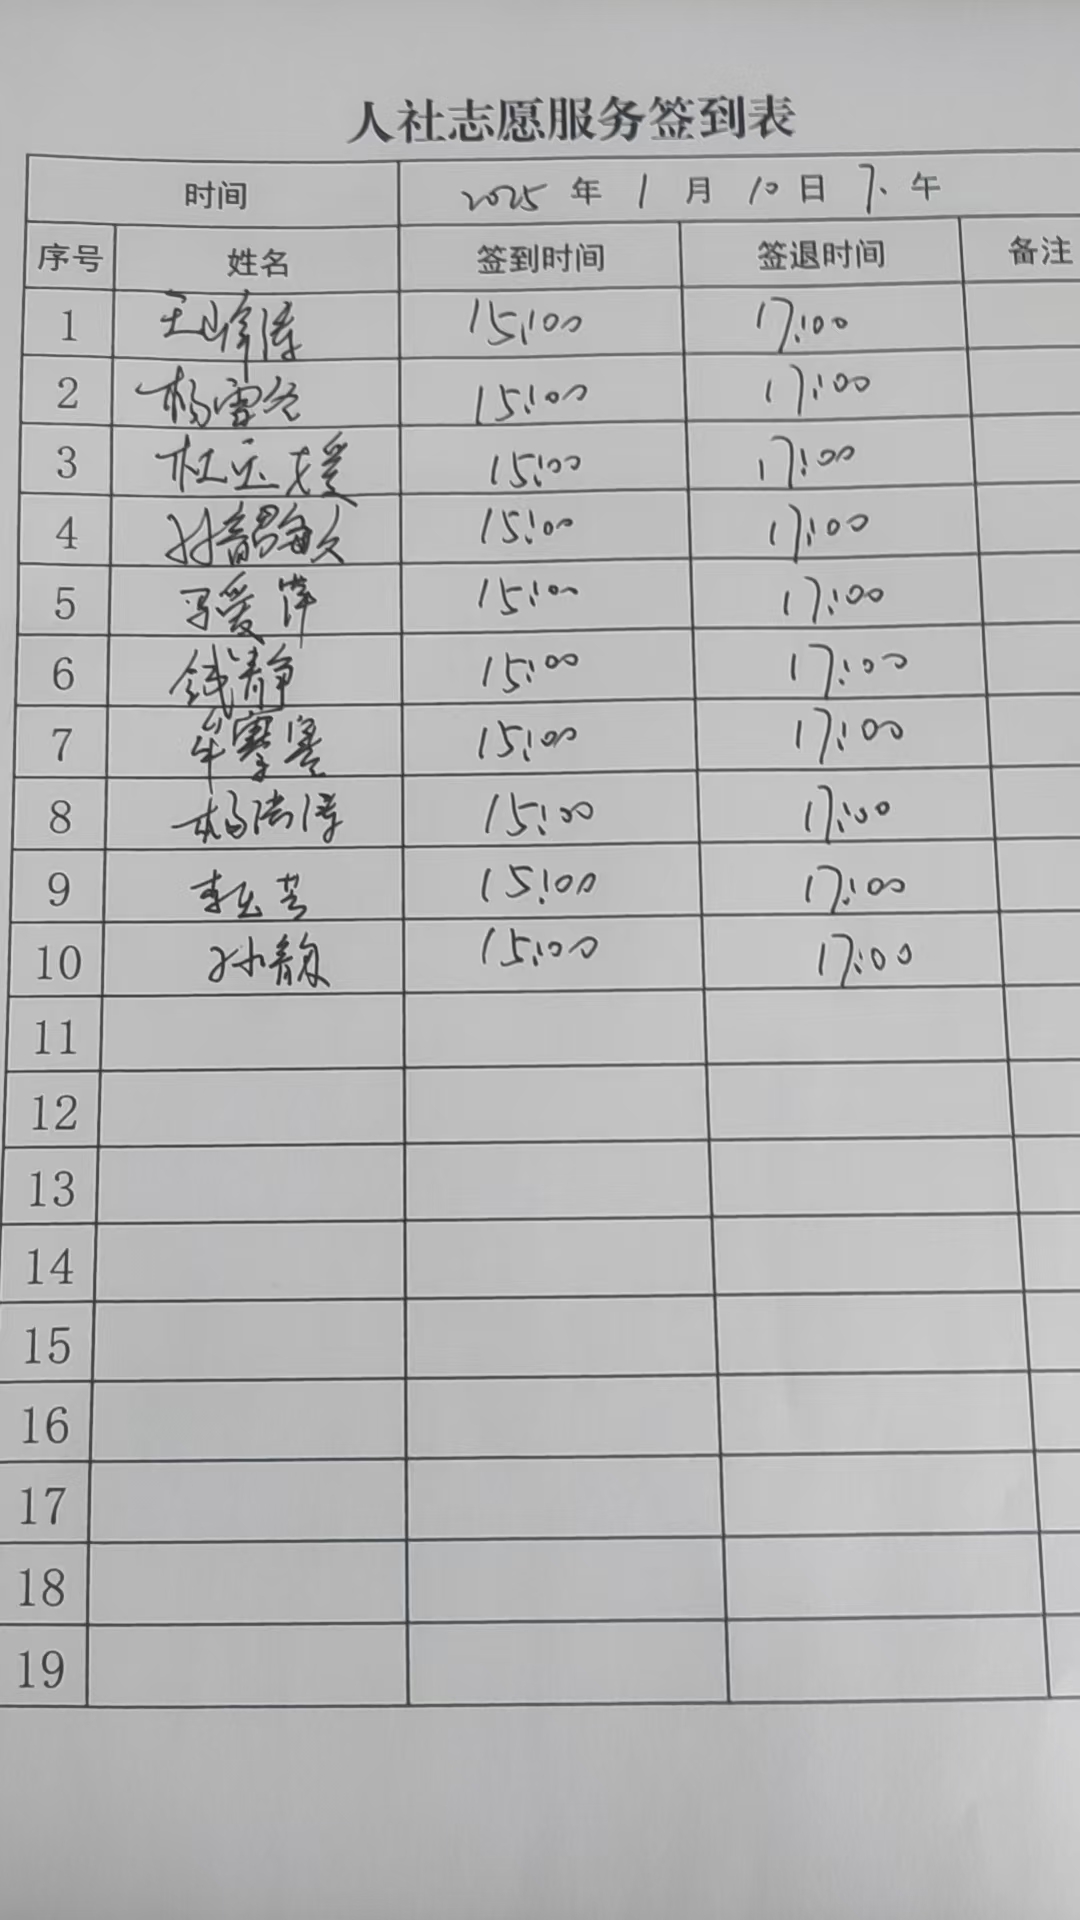 人社志愿服务签到表
时间 2025 年 1 月 10 日 下午
序号 姓名 签到时间 签退时间 备注
1 15:00 17:00
2 杨雪冬 15:00 17:00
3 杜玉媛 15:00 17:00
4 15:00 17:00
5 马爱萍 15:00 17:00
6 钱静 15:00 17:00
7 牟寒 15:00 17:00
8 杨洪涛 15:00 17:00
9 李玉芳 15:00 17:00
10 孙静 15:00 17:00
11
12
13
14
15
16
17
18
19